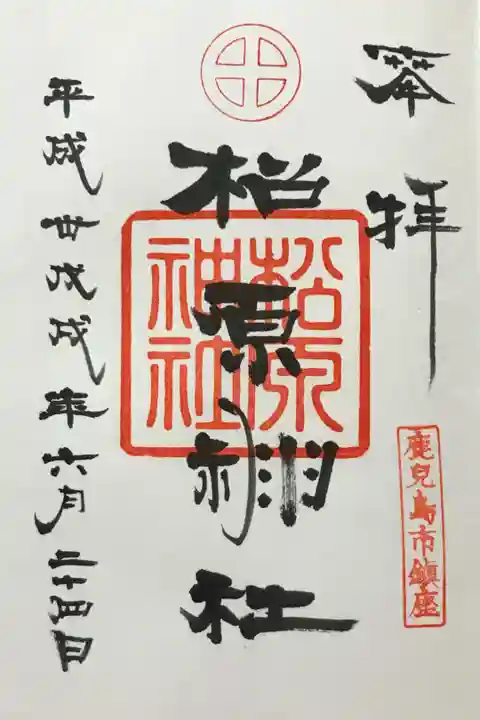 奉拝
鹿兒島市鎮座
松原神社
松原神社
平成丗戊戌年六月二十四日